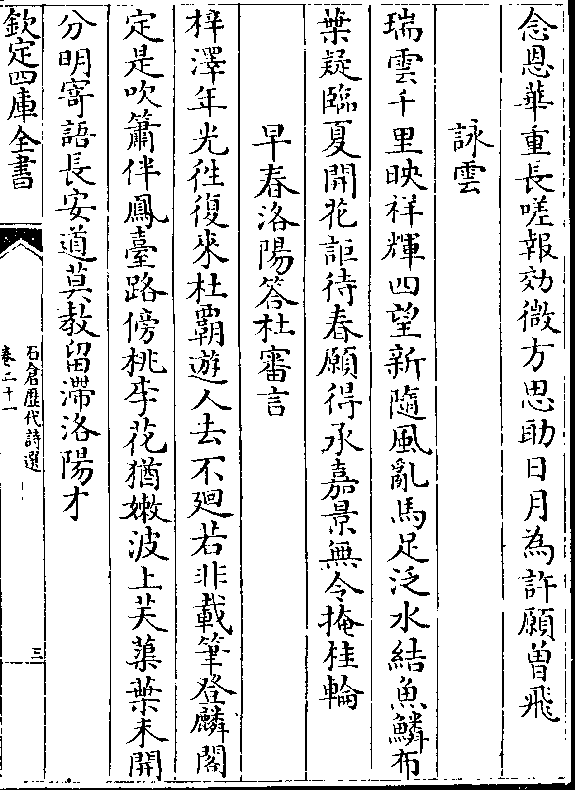 念恩華重長嗟報効微方思助日月為許願曽飛
詠雲
瑞雲千里映祥輝四望新隨風亂馬足泛水結魚鱗布
葉疑臨夏開花詎待春願得承嘉景無令掩桂輪
早春洛陽答杜審言
梓澤年光徃復來杜霸遊人去不廻若非載筆登麟閣
定是吹簫伴鳳臺路傍桃李花猶嫩波上芙蕖葉未開
分明寄語長安道莫教留滯洛陽才
欽定四庫全書
石倉歷代詩選
卷二十一
三